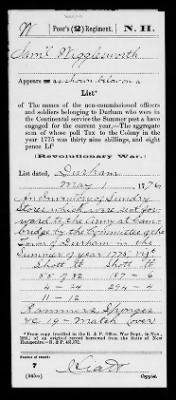 W | Poor's (2) Regiment. | N. H.
Sam'l Wigglesworth
Appears as shown below on a
List*
Of The names of the non-commissioned officers
and soldiers belonging to Durham who were in
the Continental service the Summer past & have
engaged for the current year,—The aggregate
sum of whose poll Tax to the Colony in the
year 1775 was thirty nine shillings, and eight
pence Lf
(Revolutionary War.)
List dated, Durham
May 1, 1776.
An Inventory of Sundry
Stores which were sent for
ward to the Army at Cam-
bridge by the Committee of the
Town of Durham in the
Summer of year 1775, Viz
Shott lb Shott lb
55 of 32 157 - 6
4 - 24 294 - 4
11 - 12
Rammers Sponges
&c 19 - Match over
*From copy (certified in the R. & P. Office War Dept., in
of an original record borrowed from the State of New
Hampshire.—R. & P.
Number
7
Copyist.